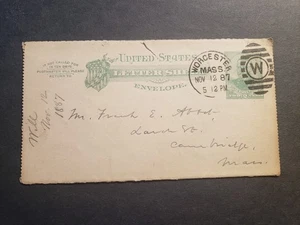 UNITED STATES
LETTER SHEET
ENVELOPE.
WORCESTER
MASS.
NOV 12 87
5 12 PM
W
Will
Nov. 12
1887
Mr. Frank E. Abbot
Land St.
Cambridge,
Mass.